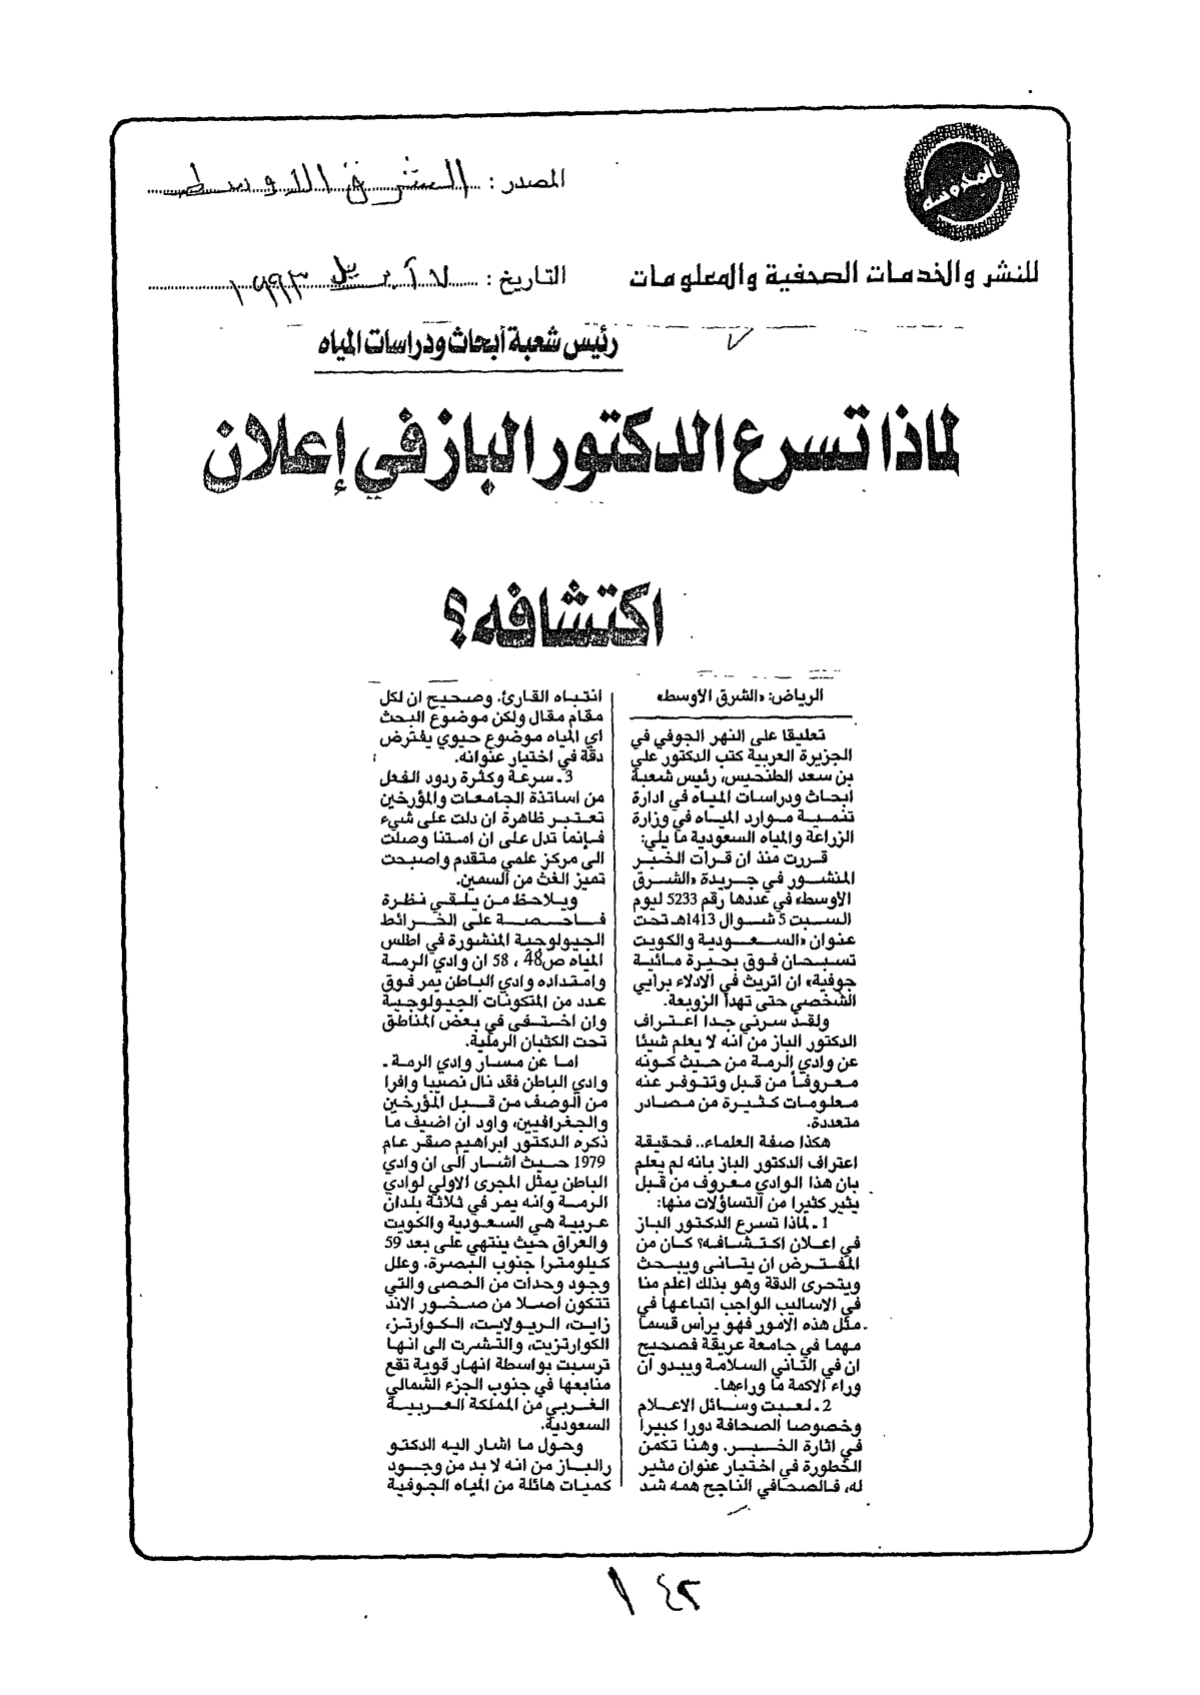 المدوسة
المصدر : الشرق الأوسط
للنشر والخدمات الصحفية والمعلومات
التاريخ : أبريل ١٩٩٣
رئيس شعبة أبحاث ودراسات المياه
لماذا تسرع الدكتور الباز في إعلان
اكتشافه؟
الرياض: «الشرق الأوسط»
تعليقا على النهر الجوفي في
الجزيرة العربية كتب الدكتور علي
بن سعد الطخيس، رئيس شعبة
ابحاث ودراسات المياه في ادارة
تنمية موارد المياه في وزارة
الزراعة والمياه السعودية ما يلي:
قررت منذ ان قرات الخبر
المنشور في جريدة «الشرق
الأوسط» في عددها رقم 5233 ليوم
السبت 5 شوال 1413هـ تحت
عنوان «السعودية والكويت
تسبحان فوق بحيرة مائية
جوفية» ان اتريث في الادلاء برايي
الشخصي حتى تهدا الزوبعة.
ولقد سرني جدا اعتراف
الدكتور الباز من انه لا يعلم شيئا
عن وادي الرمة من حيث كونه
معروفاً من قبل وتتوفر عنه
معلومات كثيرة من مصادر
متعددة.
هكذا صفة العلماء.. فحقيقة
اعتراف الدكتور الباز بانه لم يعلم
بان هذا الوادي معروف من قبل
يثير كثيرا من التساؤلات منها:
1ـ لماذا تسرع الدكتور الباز
في اعلان اكتشافه؟ كان من
المفترض ان يتانى ويبحث
ويتحرى الدقة وهو بذلك اعلم منا
في الاساليب الواجب اتباعها في
مثل هذه الامور فهو يراس قسما
مهما في جامعة عريقة فصحيح
ان في التاني السلامة ويبدو ان
وراء الاكمة ما وراءها.
2ـ لعبت وسائل الاعلام
وخصوصا الصحافة دورا كبيرا
في اثارة الخبر. وهنا تكمن
الخطورة في اختيار عنوان مثير
له، فالصحافي الناجح همه شد
انتباه القارئ. وصحيح ان لكل
مقام مقال ولكن موضوع البحث
اي المياه موضوع حيوي يفترض
دقة في اختيار عنوانه.
3ـ سرعة وكثرة ردود الفعل
من اساتذة الجامعات والمؤرخين
تعتبر ظاهرة ان دلت على شيء
فإنما تدل على ان امتنا وصلت
الى مركز علمي متقدم واصبحت
تميز الغث من السمين.
ويلاحظ من يلقي نظرة
فاحصة على الخرائط
الجيولوجية المنشورة في اطلس
المياه ص48 ، 58 ان وادي الرمة
وامتداده وادي الباطن يمر فوق
عدد من المتكونات الجيولوجية
وان اختفى في بعض المناطق
تحت الكثبان الرملية.
اما عن مسار وادي الرمة ـ
وادي الباطن فقد نال نصيبا وافرا
من الوصف من قبل المؤرخين
والجغرافيين، واود ان اضيف ما
ذكره الدكتور ابراهيم صقر عام
1979 حيث اشار الى ان وادي
الباطن يمثل المجرى الاولي لوادي
الرمة وانه يمر في ثلاثة بلدان
عربية هي السعودية والكويت
والعراق حيث ينتهي على بعد 59
كيلومترا جنوب البصرة. وعلل
وجود وحدات من الحصى والتي
تتكون اصلا من صخور الاند
زايت، الريولايت، الكوارتز،
الكوارتزيت، والتشرت الى انها
ترسبت بواسطة انهار قوية تقع
منابعها في جنوب الجزء الشمالي
الغربي من المملكة العربية
السعودية.
وحول ما اشار اليه الدكتو
رالباز من انه لا بد من وجود
كميات هائلة من المياه الجوفية
١٤٢